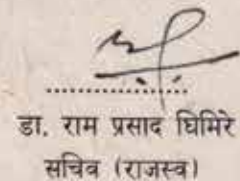 डा. राम प्रसाद घिमिरे
सचिव (राजस्व)